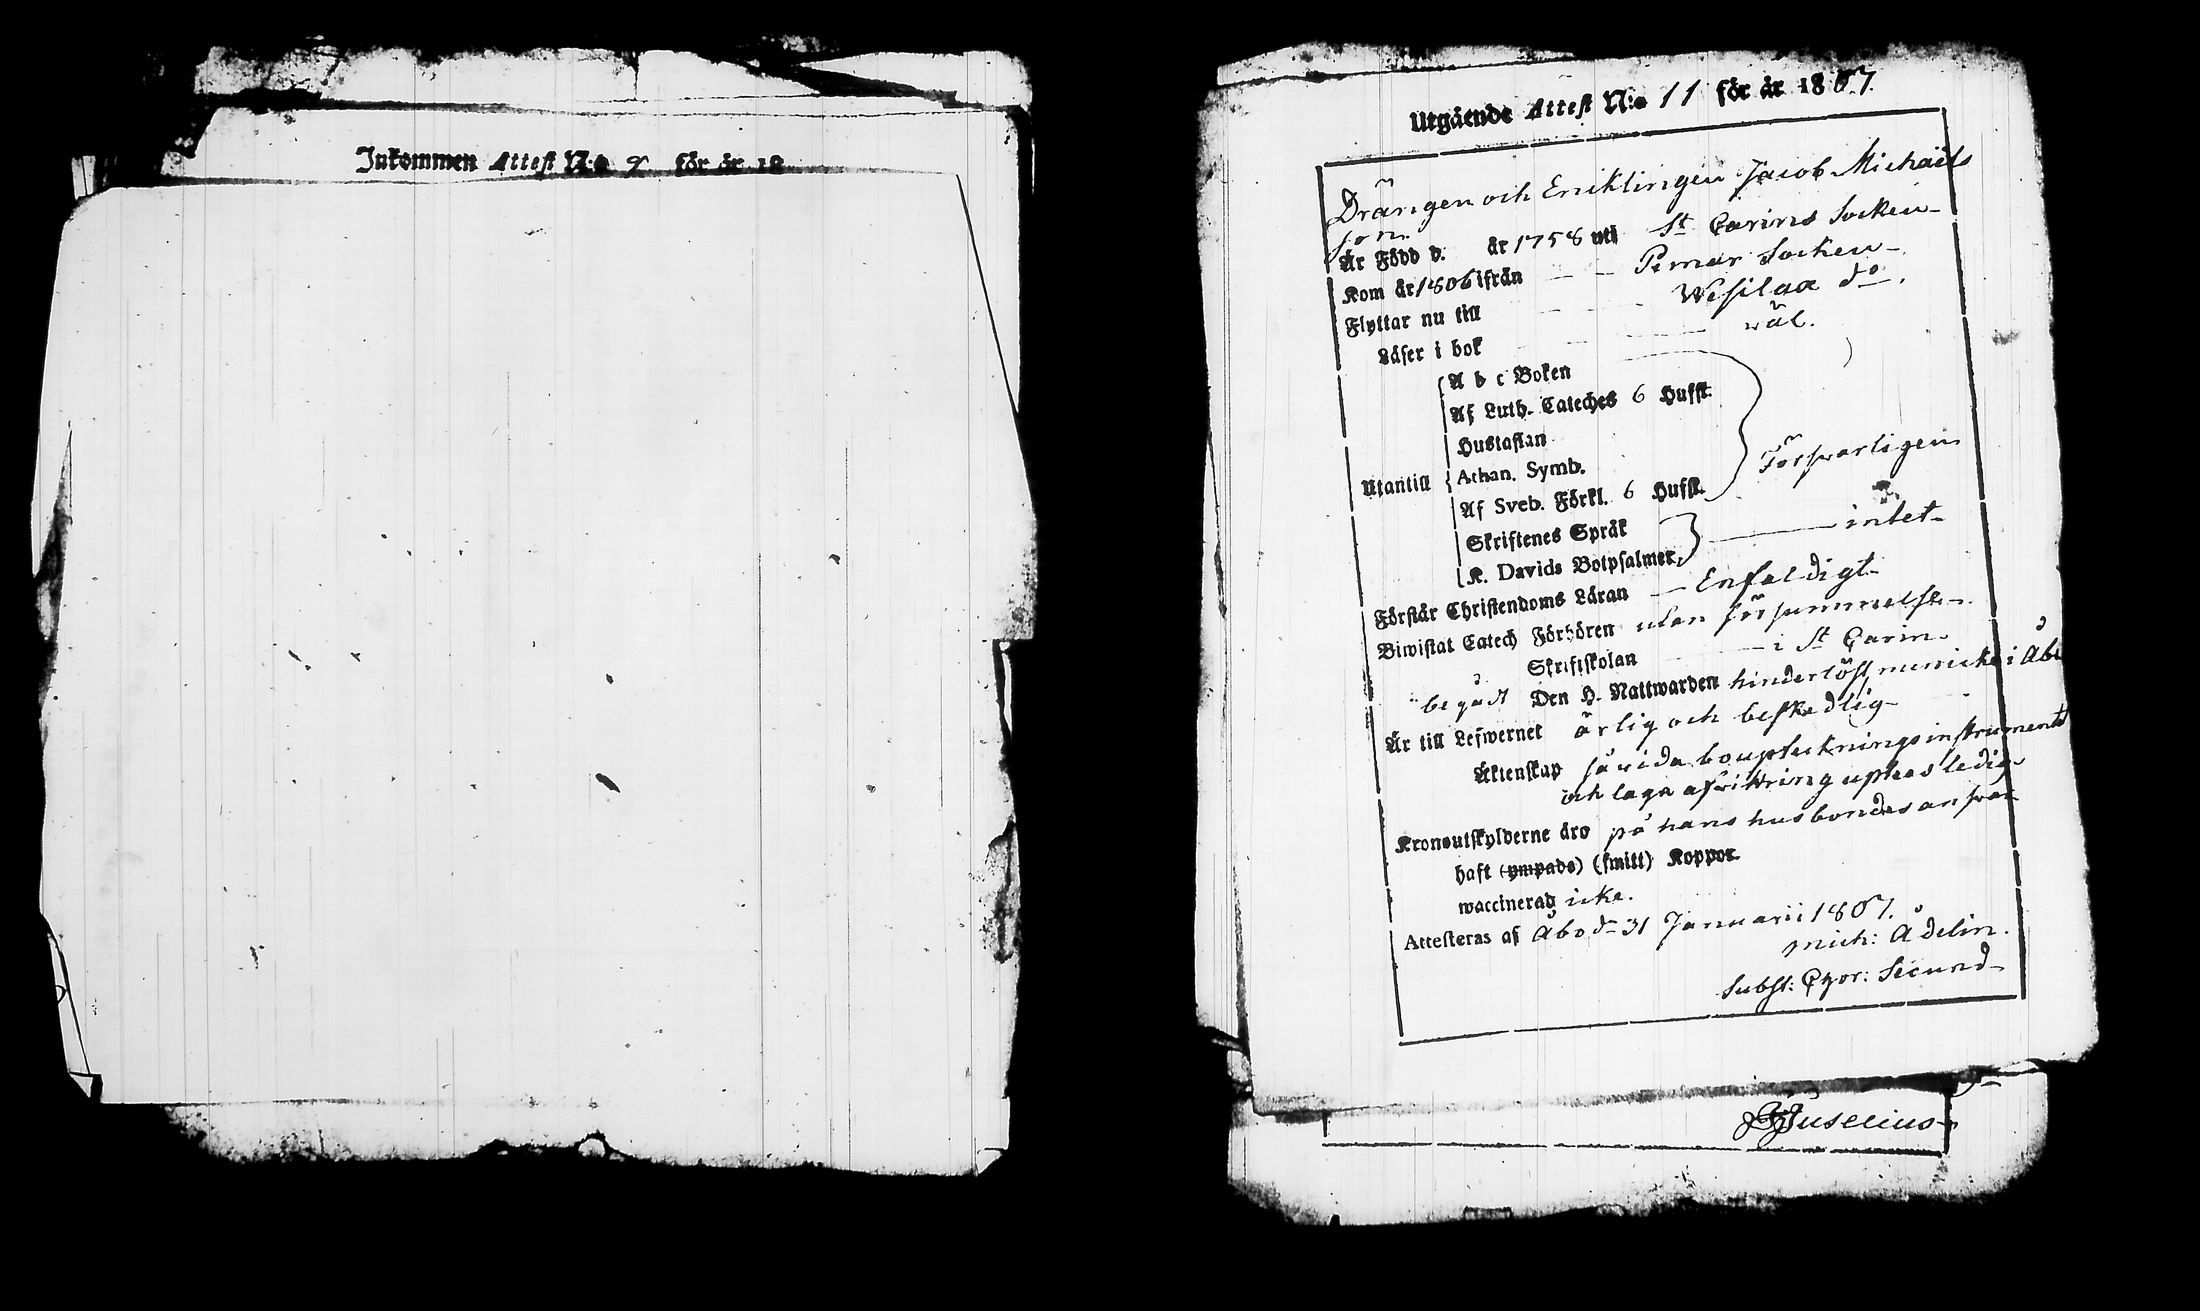 Inkommen Attest N:o 9 för år 18
Utgående Attest N:o 11 för år 1807.
Drängen och Enklingen Jacob Michaels
son
Är Född d. år 1758 uti St Carins Socken
Kom år 1806 ifrån Pemar Socken
Flyttar nu till Wesilax do.
Läser i bok wäl.
Utantill
A b c Boken
Af Luth. Cateches 6 Hufst.
Hustaflan
Athan. Symb.
Af Sveb. Förkl. 6 Hufst.
Försvarligen
Skriftenes Språk
K. Davids Botpsalmer
intet
Förstår Christendoms Läran Enfaldigt
Biwistat Catech Förhören utan försummelse
Skriftskolan i St Carin
begådt Den H. Nattwarden hinderlöst, men icke i Åbo
Är till Lefwernet ärlig och beskedlig
Äktenskap så vida bouptekningsinstrument
och laga afvittring uptees ledig
Kronoutskylderne äro på hans husbondes answar
haft (ympade) (smitt) Koppor.
waccinerad icke.
Attesteras af Åbo d 31 Januarii 1807.
Mich: Ådelin.
Subst: Cpor: Secund
Juselius